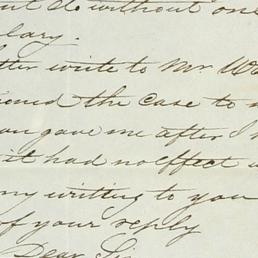 do without one
lary.
write to Mr. W
ioned the case to
you gave me after I
it had no effect
my writing to you
of your reply
Dear Sir